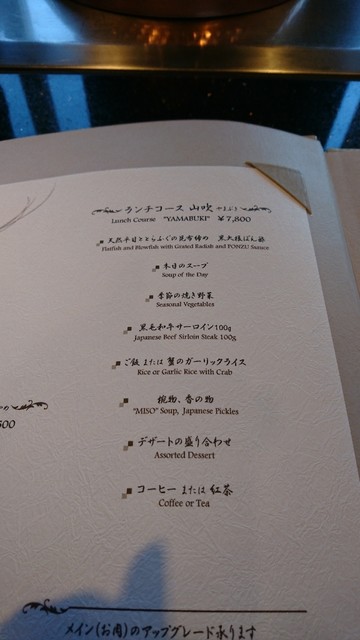 ランチコース 山吹 やまぶき
Lunch Course "YAMABUKI" ¥7,800
天然平目ととらふぐの昆布締め 黒大根ぽん酢
Flatfish and Blowfish with Grated Radish and PONZU Saauce
本日のスープ
Soup of the Day
季節の焼き野菜
Seasonal Vegetables
黒毛和牛サーロイン100g
Japanese Beef Sirloin Steak 100g
ご飯 または 蟹のガーリックライス
Rice or Garlic Rice with Crab
椀物、香の物
"MISO" Soup, Japanese Pickles
デザートの盛り合わせ
Assorted Dessert
コーヒー または 紅茶
Coffee or Tea
メイン(お肉)のアップグレード承ります